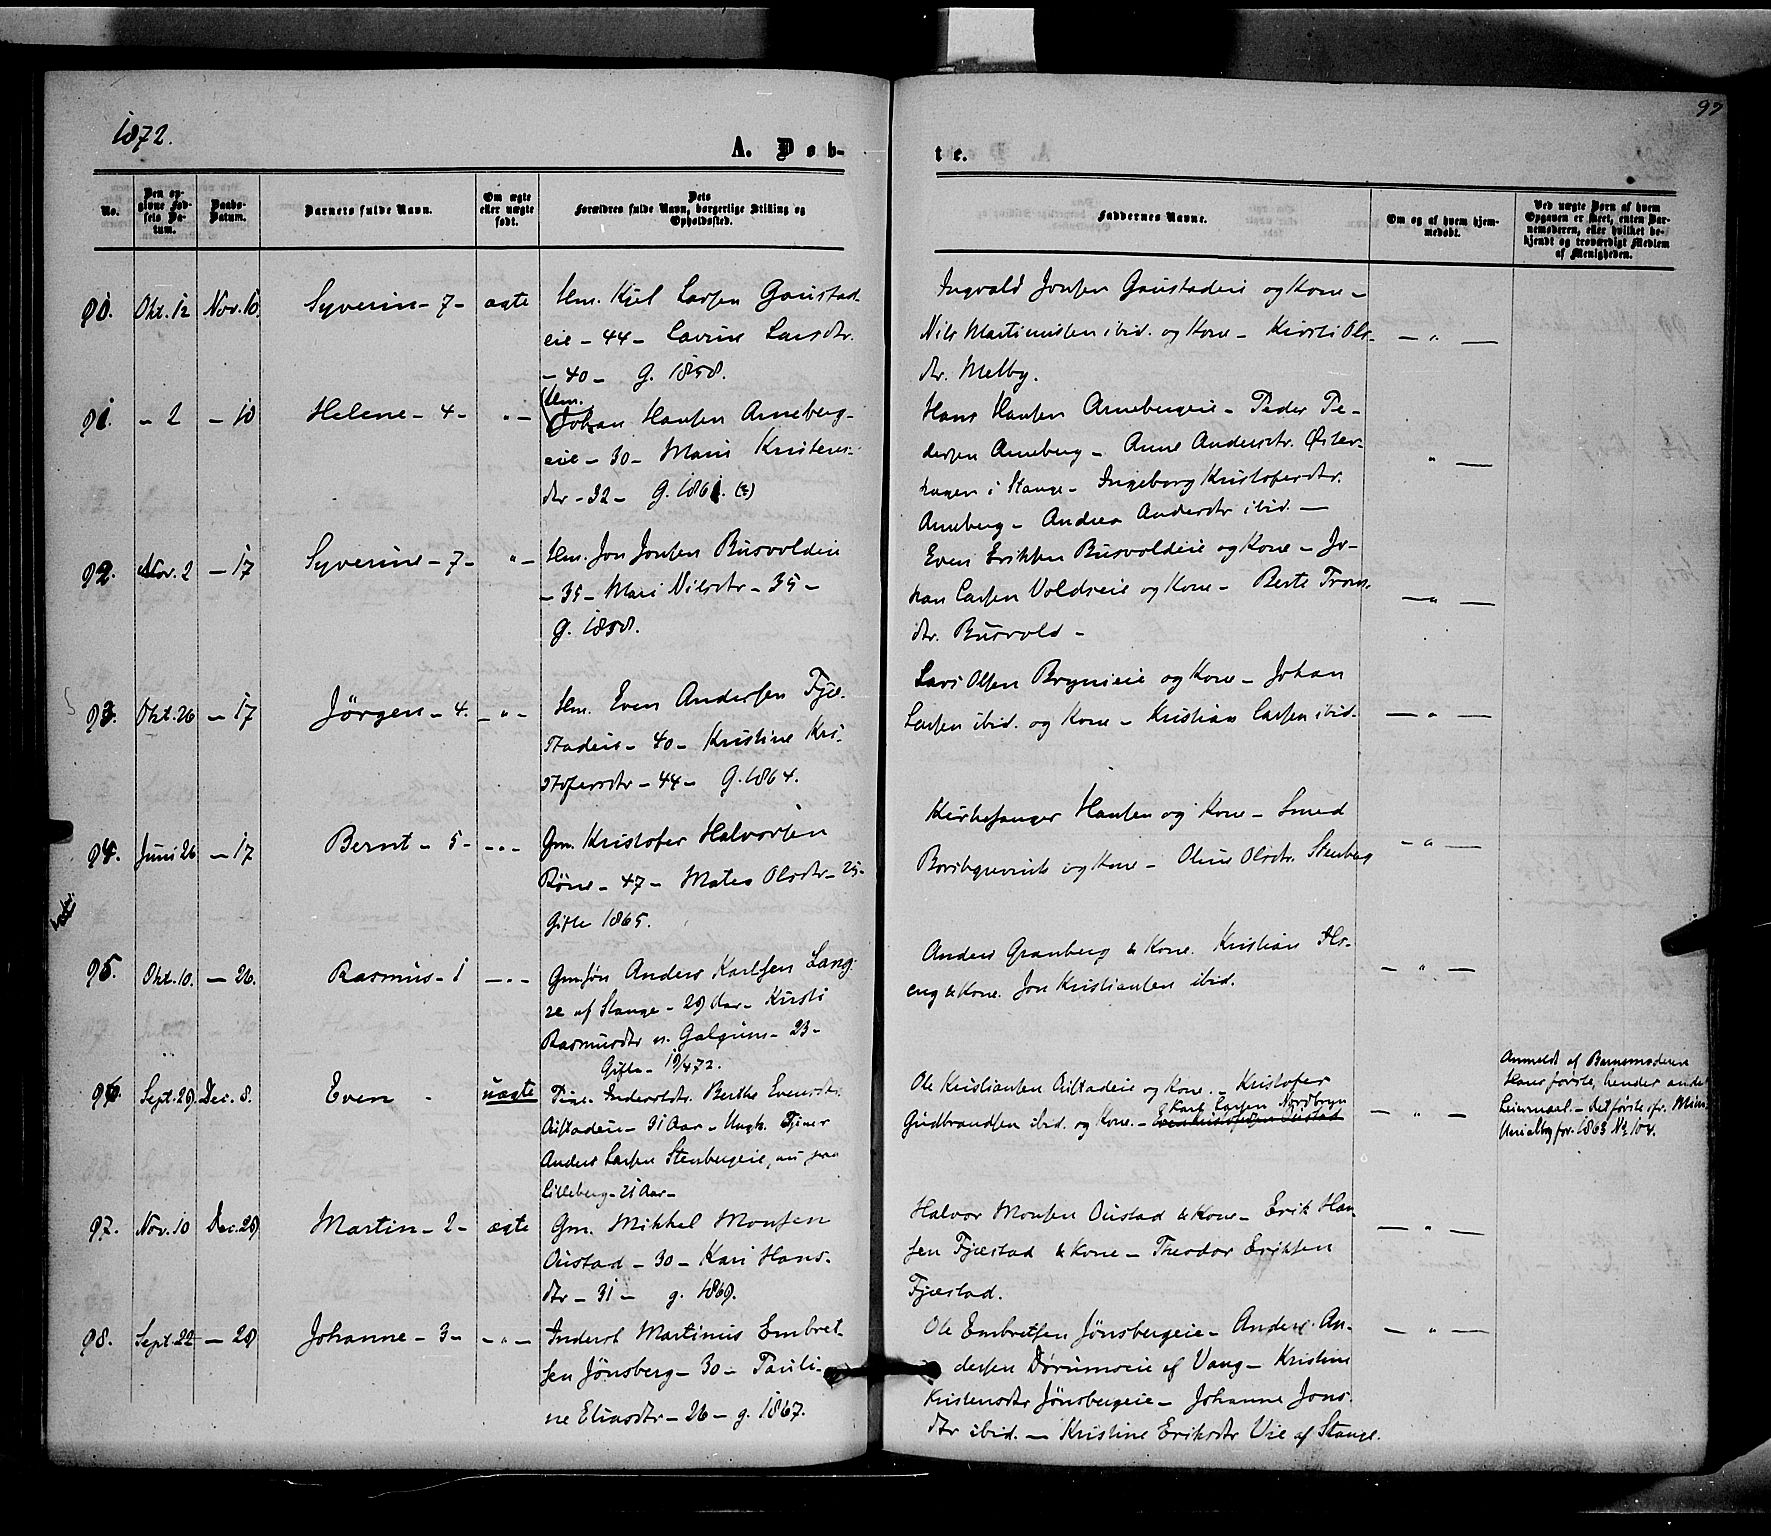 1872.
97
A. Døb-
te.
No.
Den op-
givne Fød-
sels Da-
tum.
Daabs-
Datum.
Barnets fulde Navn.
Om ægte
eller uægte
født.
Dets
Forældres fulde Navn, borgerlige Stilling og
Opholdssted.
Faddernes Navne.
Om og af hvem hjem-
medøbt.
Ved uægte Børn af hvem
Opgaven er skeet, enten Bar-
nemoderen, eller hvilket be-
kjendt og troværdigt Medlem
af Menigheden.
90. Okt. 12 Nov. 10. Syverin - 7 - ægte Hm. Kjel Larsen Gaustad-
eie - 44 - Larsdtr.
- 40 - g. 1858.
Ingvald Jonsen Gaustadeie og Kone -
Nils Martinussen ibid. og Kone - Kirsti Ols-
dtr. Melby.
— " —
91. - 2 - 10 Helene - 4 - " - Hm.
Johan Hansen Arneberg-
eie - 30 - Mari Kristens-
dtr - 32 - g. 1861. (?)
Hans Hansen Arnebergeie - Peder Pe-
dersen Arneberg - Anne Andersdtr. Øster-
hagen i Stange - Ingeborg Kristofersdtr.
Arneberg - Andrea Andersdtr ibid. —
" —
92. Nov. 2 - 17 Syverine - 7 - " - Hm. Jon Jonsen Busvoldeie
- 35 - Mari Nilsdtr - 35 -
g. 1858.
Even Eriksen Busvoldeie og Kone - Jo-
han Larsen Voldseie og Kone - Berte
dtr. Busvold -
— " —
93. Okt. 26 - 17 Jörgen - 4. - " - Hm. Even Andersen Fjæ-
stadeie - 40 - Kristine Kri-
stofersdtr - 44 - g. 1864.
Lars Olsen Brynieie og Kone - Johan
Larsen ibid. og Kone - Kristian Larsen ibid.
— " —
94. Juni 26 - 17 Bernt - 5 - - " - Gm. Kristofer Halvorsen
Röne - 47 - Mathea Olsdtr - 25 -
Gifte 1865.
Kirkesanger Hansen og Kone - Smed
og Kone - Oline Olsdtr. Stenberg
- " —
95. Okt. 10. - 26. Rasmus - 1 — " - Gmsøn Anders Karlsen Lang-
af Stange - 29 Aar - Kirsti
Rasmusdtr n. Galgum - 23 -
Gifte - 19/4 72.
Anders Granberg & Kone. Kristian
eng & Kone. Jon Kristiansen ibid.
- " —
96. Sept. 29 Dec. 8. Even - uægte Pige. Inderstdtr. Berthe Evensdtr.
Aistadeie - 31 Aar - Ungk. Tjener
Anders Larsen Stenbergeie, nu paa
Lilleberg - 21 Aar -
Ole Kristiansen Aistadeie og Kone. - Kristofer
Karl Larsen Nordbryn
Gudbrandsen ibid. og Kone. -
- " -
Anmeldt af Barnemoderen
Hans første, hendes andet
Leiermaal. - Det første sfr. Min.
for. 1863 No 104.
97. Nov. 10 Dec. 29 Martin - 2 - ægte Gm. Mikkel Monsen
Oustad - 30 - Kari Hans-
dtr - 31 - g. 1869.
Halvor Monsen Oustad & Kone - Erik Han-
sen Fjæstad & Kone - Theodor Eriksen
Fjæstad.
— " —
98. Sept. 22 - 29 Johanne - 3 - - " - Inderst Martinus Embret-
sen Jönsberg - 30 - Pauli-
ne Eliasdtr - 26 - g. 1867.
Ole Embretsen Jönsbergeie - Anders An-
dersen Dörumseie af Vang - Kristine
Kristensdtr Jönsbergeie - Johanne Jons-
dtr ibid. — Kristine Eriksdtr Vie af Stange.
- " —